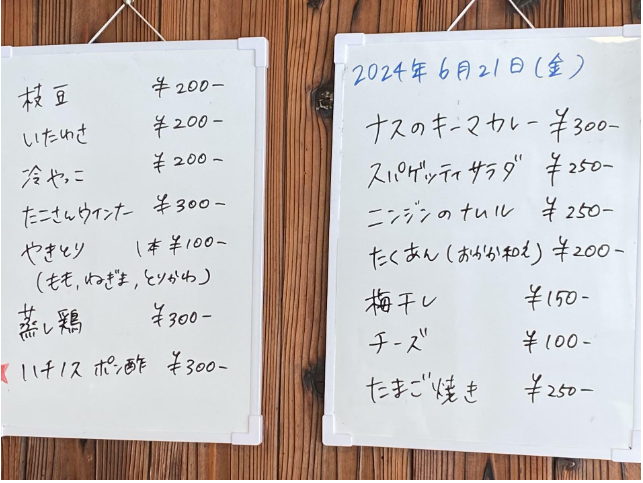 枝豆 ¥200-
いたわさ ¥200-
冷やっこ ¥200-
たこさんウインナー ¥300-
やきとり 1本 ¥100-
(もも,ねぎま,とりかわ)
蒸し鶏 ¥300-
ハチノスポン酢 ¥300-
2024年6月21日(金)
ナスのキーマカレー ¥300-
スパゲッティサラダ ¥250-
ニンジンのナムル ¥250-
たくあん(おかか和え) ¥200-
梅干し ¥150-
チーズ ¥100-
たまご焼き ¥250-